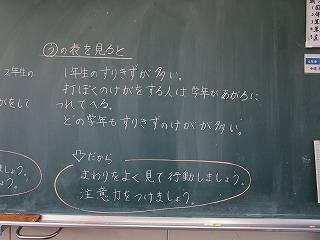 ②の表を見ると
1年生のすりきずが多い。
打ぼくのけがをする人は学年があがるに
つれてへる。
どの学年もすりきずのけがが多い。
だから
まわりをよく見て行動しましょう。
注意力をつけましょう。
2年生の
がをして
しょう。
う。